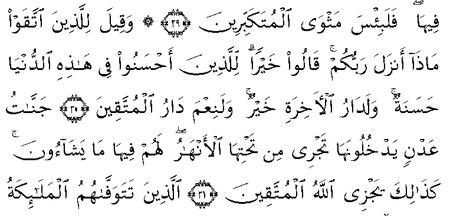 فِيهَا ۖ فَلَبِئْسَ مَثْوَى ٱلْمُتَكَبِّرِينَ ﴿٢٩﴾ ۞ وَقِيلَ لِلَّذِينَ ٱتَّقَوْا۟
مَاذَآ أَنزَلَ رَبُّكُمْ ۚ قَالُوا۟ خَيْرًا ۗ لِّلَّذِينَ أَحْسَنُوا۟ فِى هَٰذِهِ ٱلدُّنْيَا
حَسَنَةٌ ۚ وَلَدَارُ ٱلْءَاخِرَةِ خَيْرٌ ۚ وَلَنِعْمَ دَارُ ٱلْمُتَّقِينَ ﴿٣٠﴾ جَنَّٰتُ
عَدْنٍ يَدْخُلُونَهَا تَجْرِى مِن تَحْتِهَا ٱلْأَنْهَٰرُ ۖ لَهُمْ فِيهَا مَا يَشَآءُونَ ۚ
كَذَٰلِكَ يَجْزِى ٱللَّهُ ٱلْمُتَّقِينَ ﴿٣١﴾ ٱلَّذِينَ تَتَوَفَّىٰهُمُ ٱلْمَلَٰٓئِكَةُ